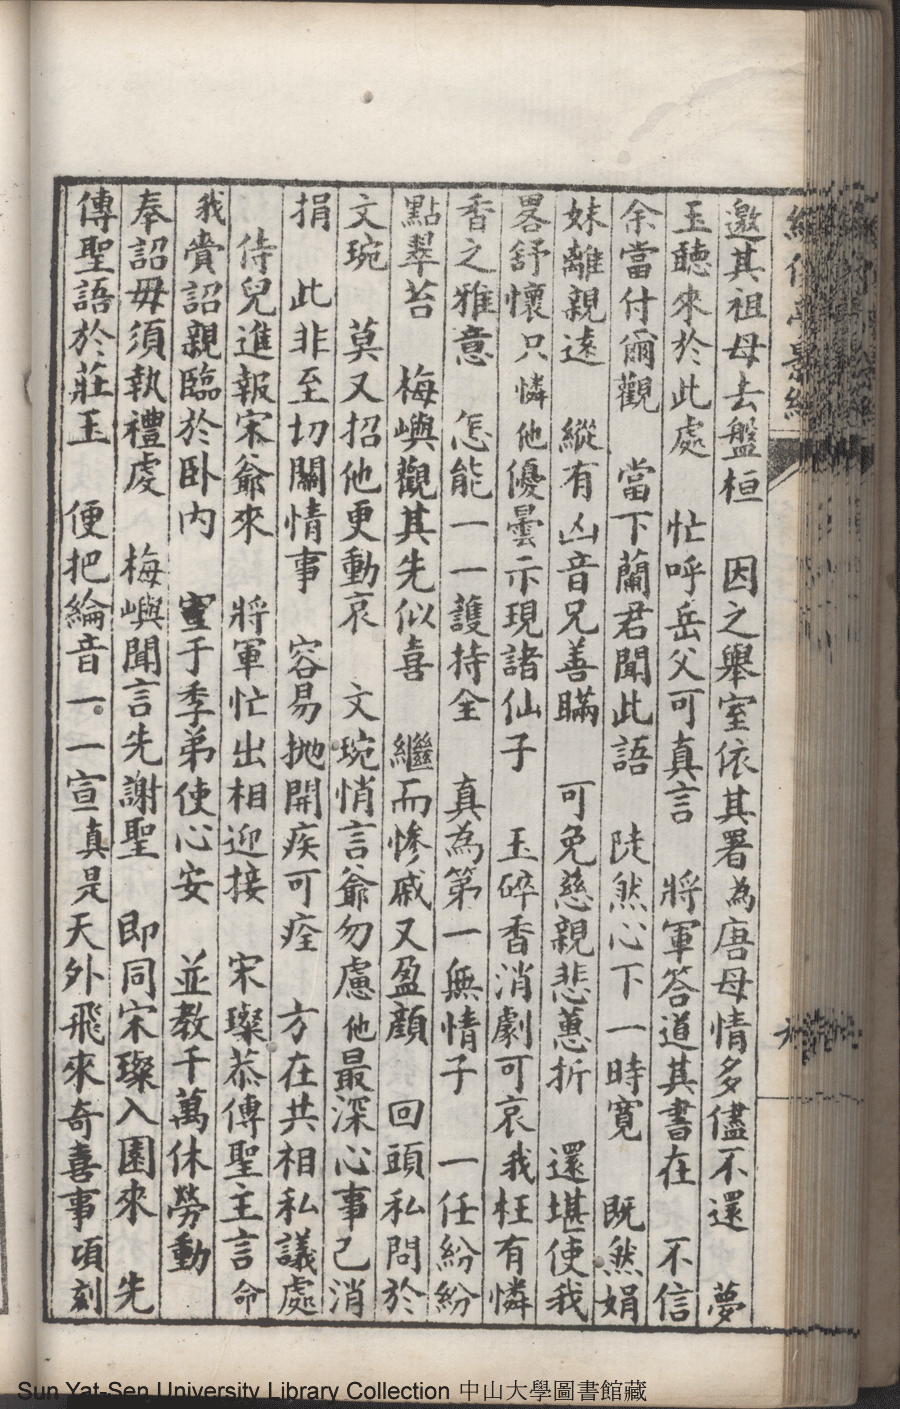 邀其祖母去盤桓　因之舉室依其署　為唐母情多儘不還　夢
玉聽來於此處　忙呼岳父可真言　將軍答道其書在　不信
余當付爾觀　當下蘭君聞此語　陡然心下一時寬　既然娟
妹離親遠　縱有凶音兄善瞞　可免慈親悲蕙折　還堪使我
畧舒懷　只憐他優曇示現諸仙子　玉碎香消劇可哀　我枉有憐
香之雅意　怎能一一護持全　真為第一無情子　一任紛紛
點翠苔　梅嶼觀其先似喜　繼而慘戚又盈顏　回頭私問於
文琬　莫又招他更動哀　文琬悄言爺勿慮　他最深心事已消
捐　此非至切關情事　容易拋開疾可痊　方在共相私議處
侍兒進報宋爺來　將軍忙出相迎接　宋璨恭傳聖主言　命
我賫詔親臨於卧内　宣于季弟使心安　並教千萬休勞動
奉詔毋須執禮虔　梅嶼聞言先謝聖　即同宋璨入園來　先
傳聖語於莊玉　便把綸音一一宣　真是天外飛來奇喜事　頃刻
Sun Yat-Sen University Library Collection 中山大學圖書館藏